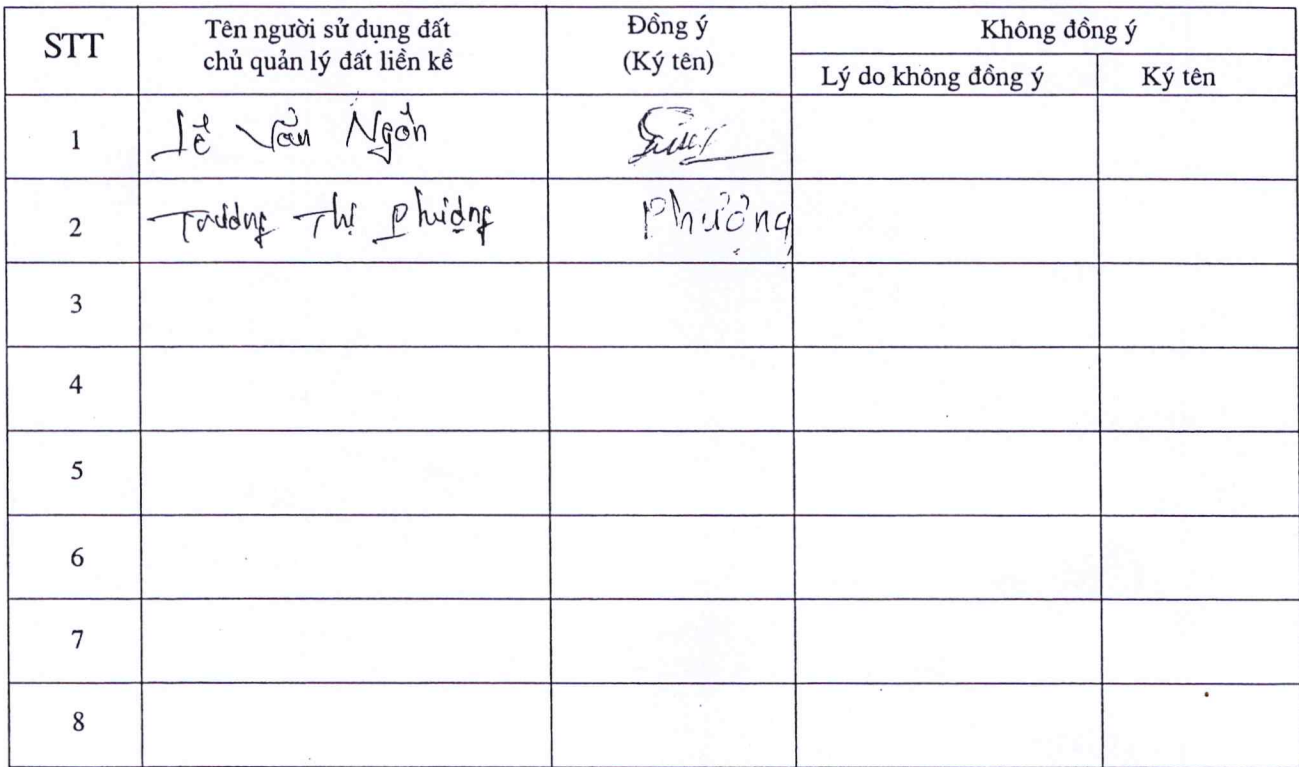 STT
Tên người sử dụng đất
chủ quản lý đất liền kề
Đồng ý
(Ký tên)
Không đồng ý
Lý do không đồng ý
Ký tên
1
Lê Văn Ngôn
2
Trương Thị Phượng
Phượng
3
4
5
6
7
8